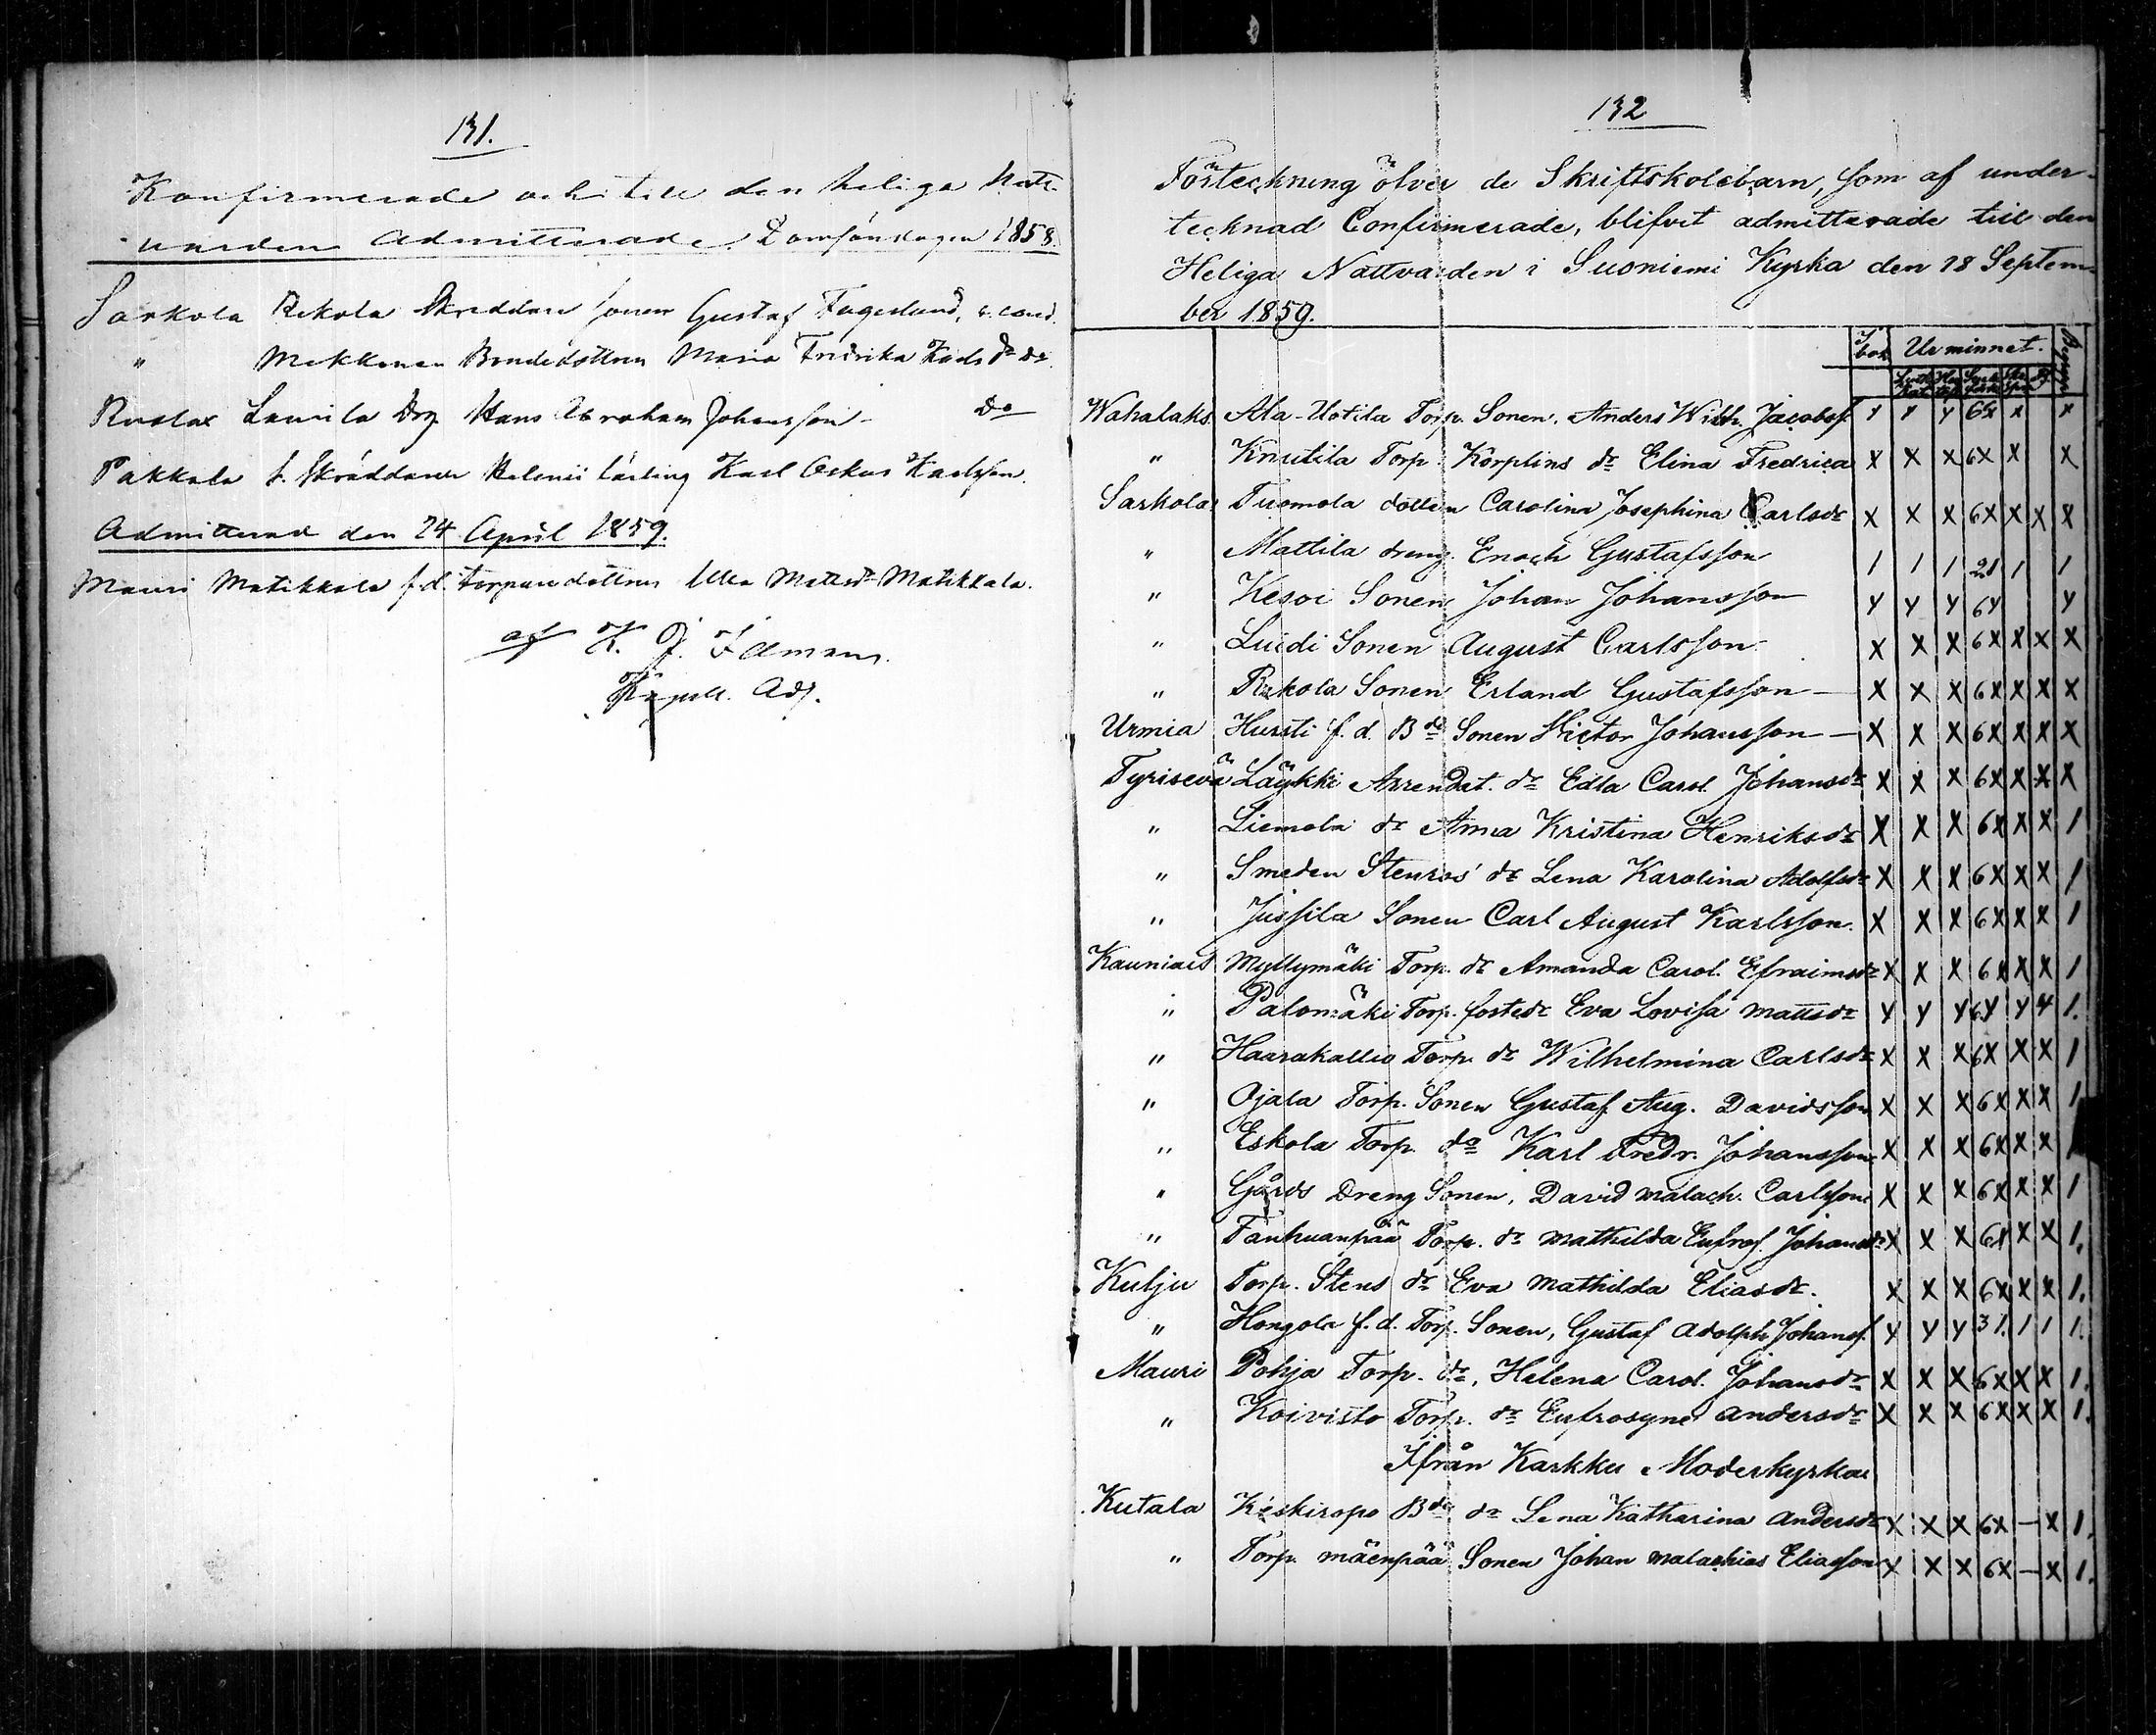 131.
Konfirmerade och till den heliga Natt-
varden admitterade Domsöndagen 1858.
Sarkola Rekola Skreddare sonen Gustaf Fagerlund,
" Mekkonen Bondedottren Maria Fredrika Karls dr do
Laurila Drg Hans Abraham Johansson - do
Pakkala Skräddaren lärling Karl Oskar Karlsson.
Admitterad den 24 April 1859.
Mauri Matikkala f.d. torparedottren Ulla Mattsdr Matikkala.
af K. J. Idman.
Kapell. Adj.
132
Förteckning öfver de Skriftskolebarn, som af under-
tecknad Confirmerade, blifvit admitterade till den
Heliga Nattvarden i Suoniemi Kyrka den 18 Septem-
ber 1859.
I bok Ur minnet. Begrep
Wahalaks Ala-Uotila Torp. Sonen, Anders Wilh. Jacobss. x x y 6x x x
" Knutila Torp. Körplins dr Elina Fredrica x x x 6x x x
Sarkola Tuomola dottren Carolina Josephina Carlsdr x x x 6x x x x
" Mattila dreng. Enoch Gustafsson 1 1 1 21 1 1
" Kesoi Sonen Johan Johansson y y y 6y y
" Luidi Sonen August Carlsson x x x 6x x x x
" Rekola Sonen Erland Gustafsson — x x x 6x x x x
Urmia Hursti f.d. Bde Sonen Victor Johansson — x x x 6x x x x
Tyrisevä Läykki Arrendat. dr Edla Carol. Johansdr x x x 6x x x x
" Liemola dr Anna Kristina Henriksdr x x x 6x x x 1
" Smeden Stenros' dr Lena Karolina Adolfsdr x x x 6x x x 1
" Jussila Sonen Carl August Karlsson. x x x 6x x x 1
Kauniais Myllymäki Torp. dr Amanda Carol. Efraimsdr x x x 6x x x 1
" Palomäki Torp. fostedr Eva Lovisa Mattsdr y y y 6y y 4 1.
" Haarakallio Torp. dr Wilhelmina Carlsdr x x x 6x x x 1
" Ojala Torp. Sonen Gustaf Aug. Davidsson x x x 6x x x 1
" Eskola Torp. do Karl Fredr. Johansson x x x 6x x x
" Gårds Dreng Sonen, David Malach. Carlsson x x x 6x x x 1
" Tanhuanpää Torp. dr Mathilda Eufros. Johansdr x x x 6x x x 1.
Kulju Torp. Stens dr Eva Mathilda Eliasdr. x x x 6x x x 1.
" Hongola f.d. Torp. Sonen, Gustaf Adolph Johanss. y y y 31. 1 1 1.
Mauri Pohja Torp. dr, Helena Carol. Johansdr x x x 6x x x 1.
" Koivisto Torp. dr Eufrosyne Andersdr x x x 6x x x 1.
Ifrån Karkku Moderkyrka
Kutala Keskiropo Bde dr Lena Katharina Andersdr x x x 6x — x 1.
" Torp. Mäenpää Sonen Johan Malachias Eliasson x x x 6x — x 1.